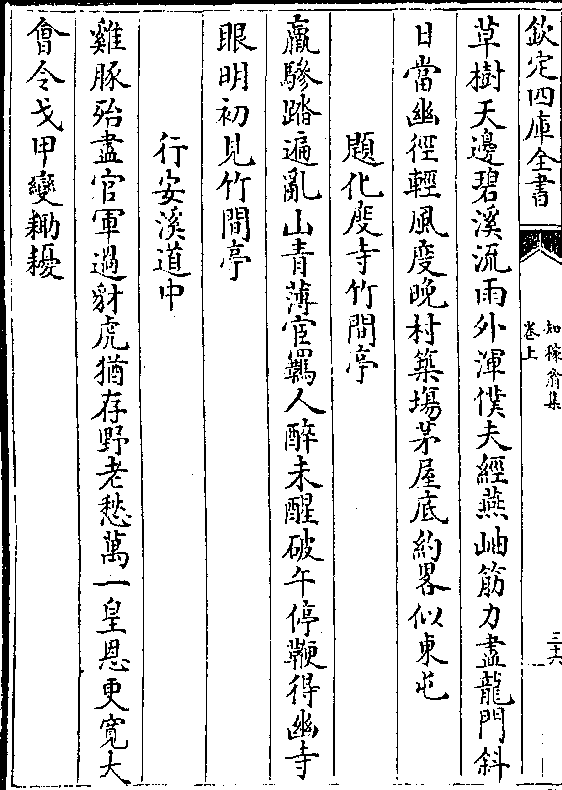 欽定四庫全書
知稼翁集
卷上
三十六
草樹天邊碧溪流雨外渾僕夫經燕岫筋力盡龍門斜
日當幽徑輕風度晚村築場茅屋底約畧似東屯
題化度寺竹間亭
羸驂踏遍亂山青薄宦羈人醉未醒破午停鞭得幽寺
眼明初見竹間亭
行安溪道中
雞豚殆盡官軍過豺虎猶存野老愁萬一皇恩更寬大
會令戈甲變耡耰